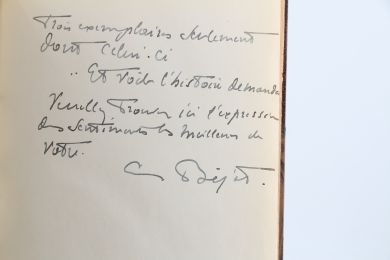 Trois exemplaires seulement
dont celui-ci
.. Et voilà l'histoire demandée
Veuillez trouver ici l'expression
des sentiments les meilleurs de
votre